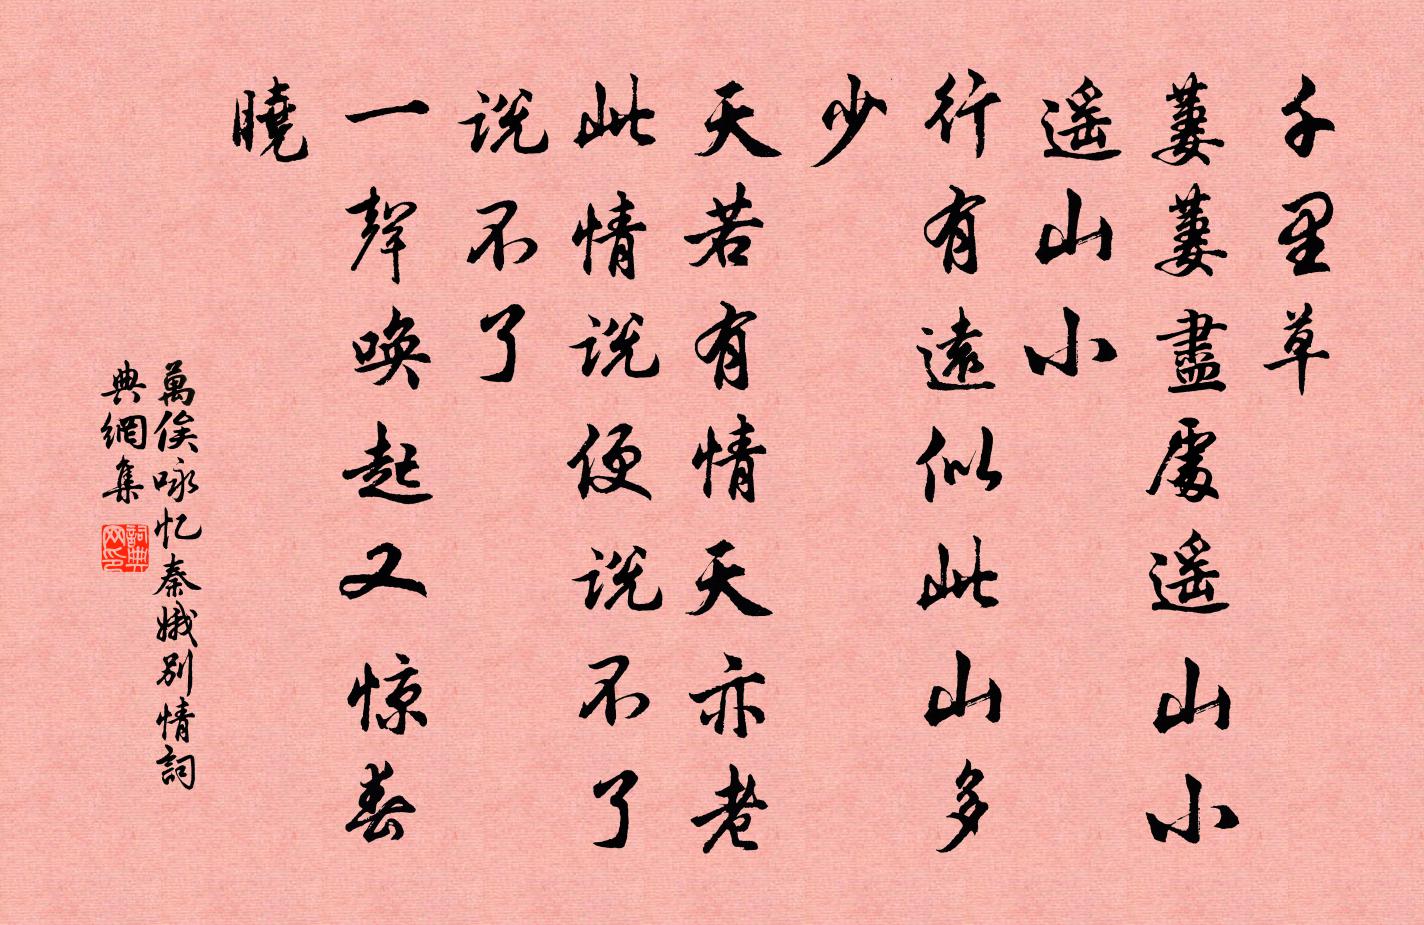 千里草
萋萋盡處遥山小
遥山小
行有遠似此山多
少
天若有情天亦老
此情说便说不了
说不了
一聲唤起又惊春
曉
萬俟咏忆秦娥别情詞
典網集
詞典
网印